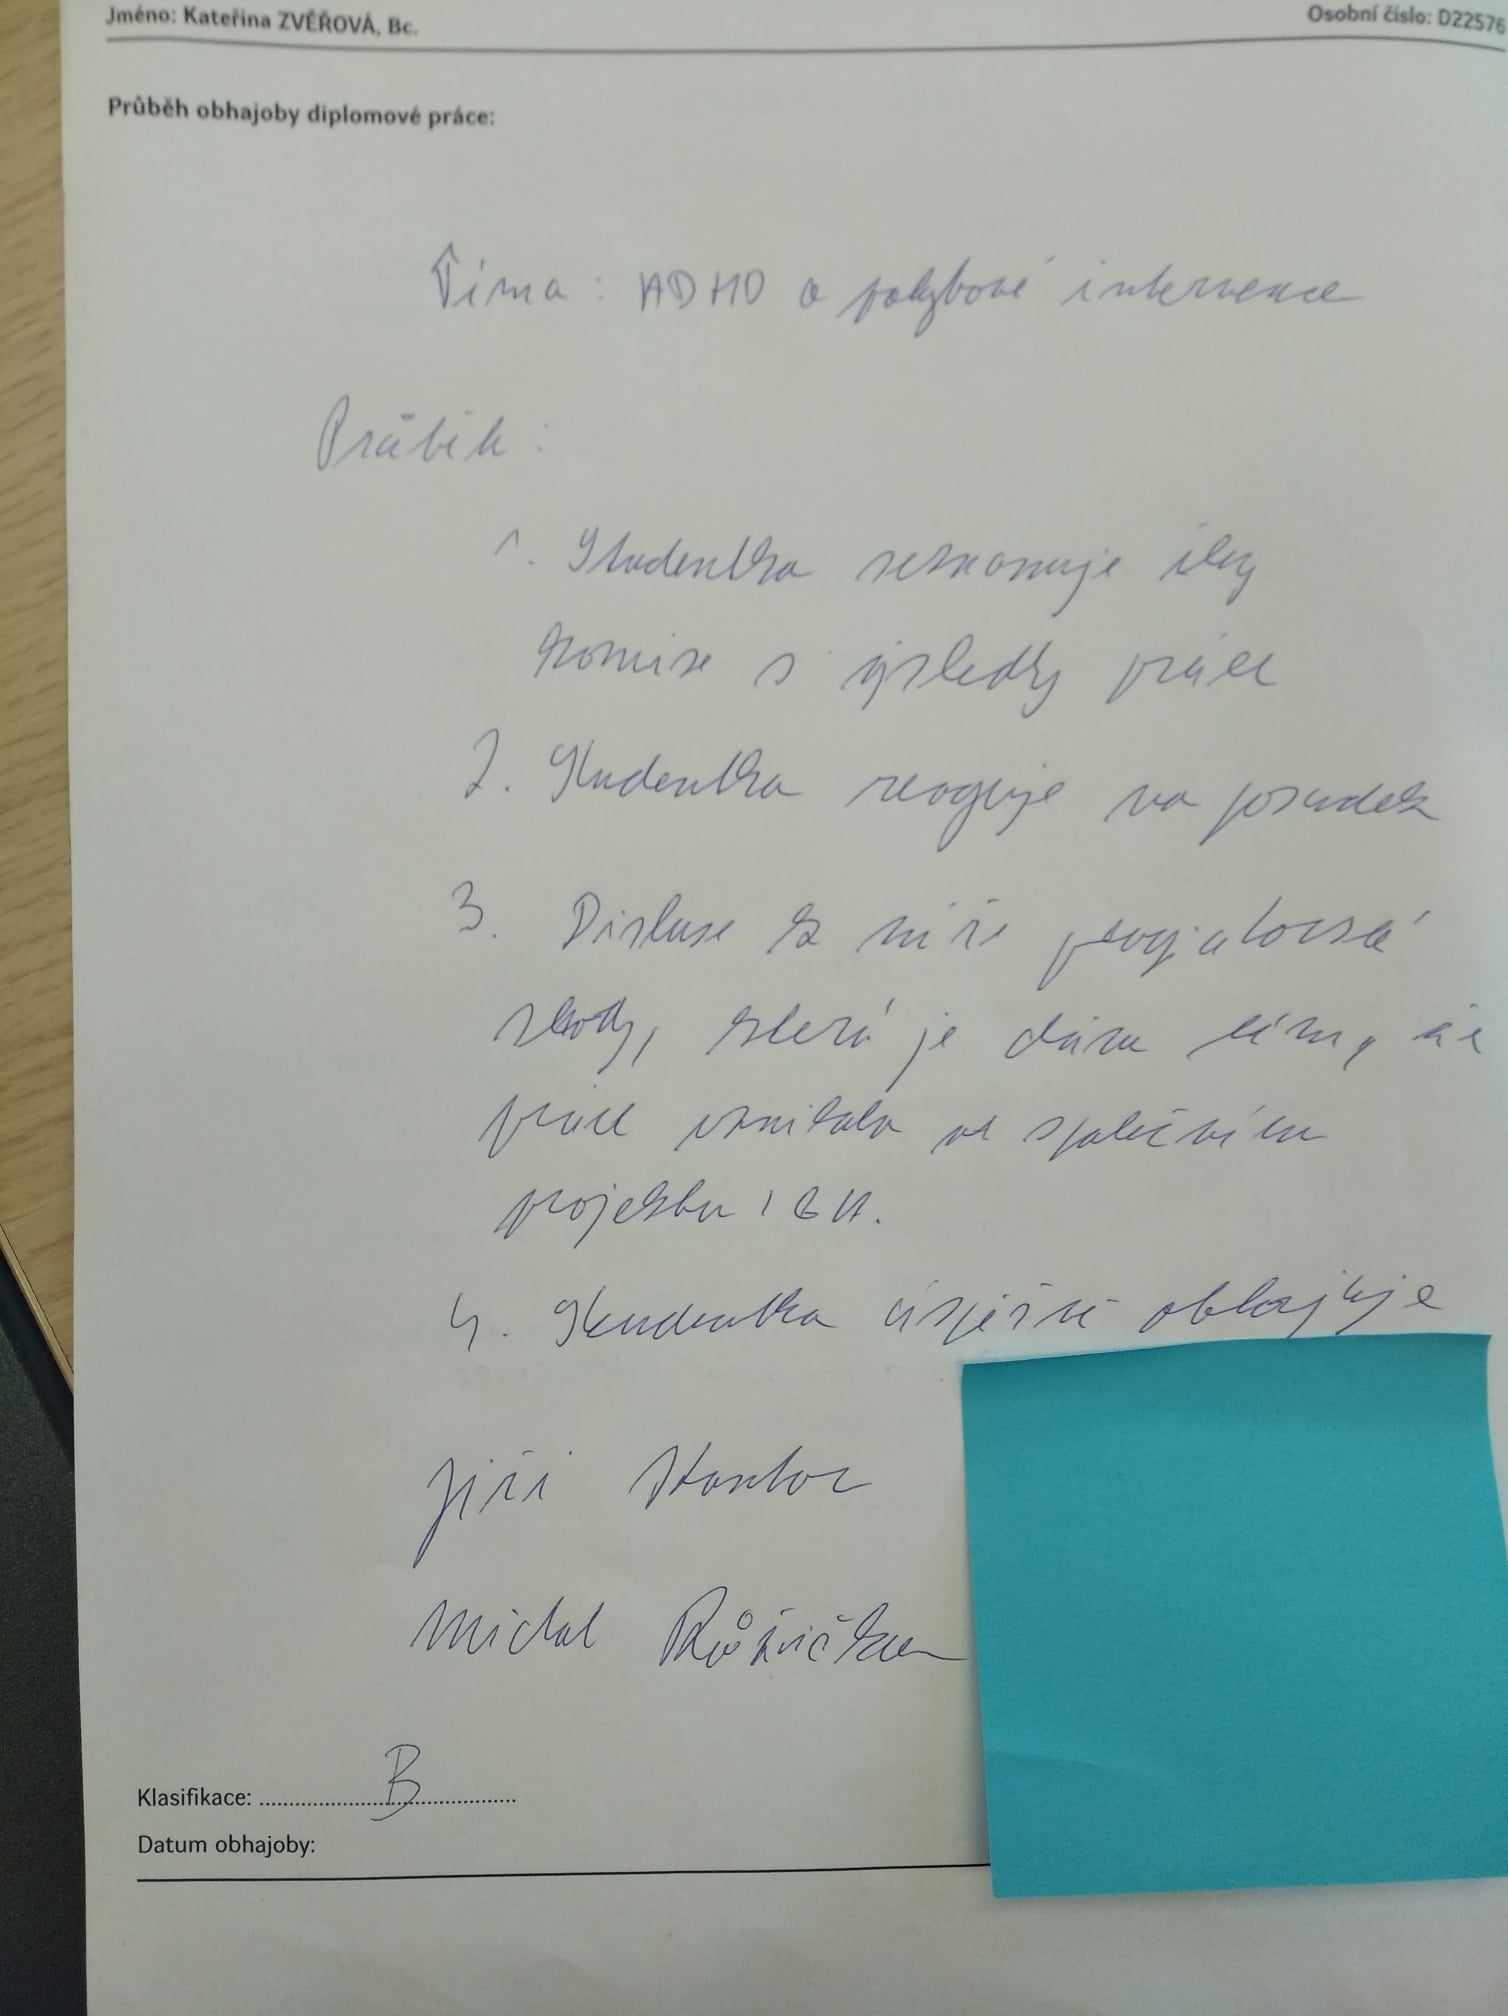 Jméno: Kateřina ZVĚŘOVÁ, Bc.
Osobní číslo: D22576
Průběh obhajoby diplomové práce:
Téma: ADHD a pohybové intervence
Průběh:
1. Studentka seznamuje členy
komise s výsledky práce
2. Studentka reaguje na posudek
3. Diskuse k míře
shody, která je dána tím, že
práce vznikala ve společném
projektu IGA.
4. Studentka úspěšně obhajuje
Jiří
Michal Růžička
Klasifikace: B
Datum obhajoby: